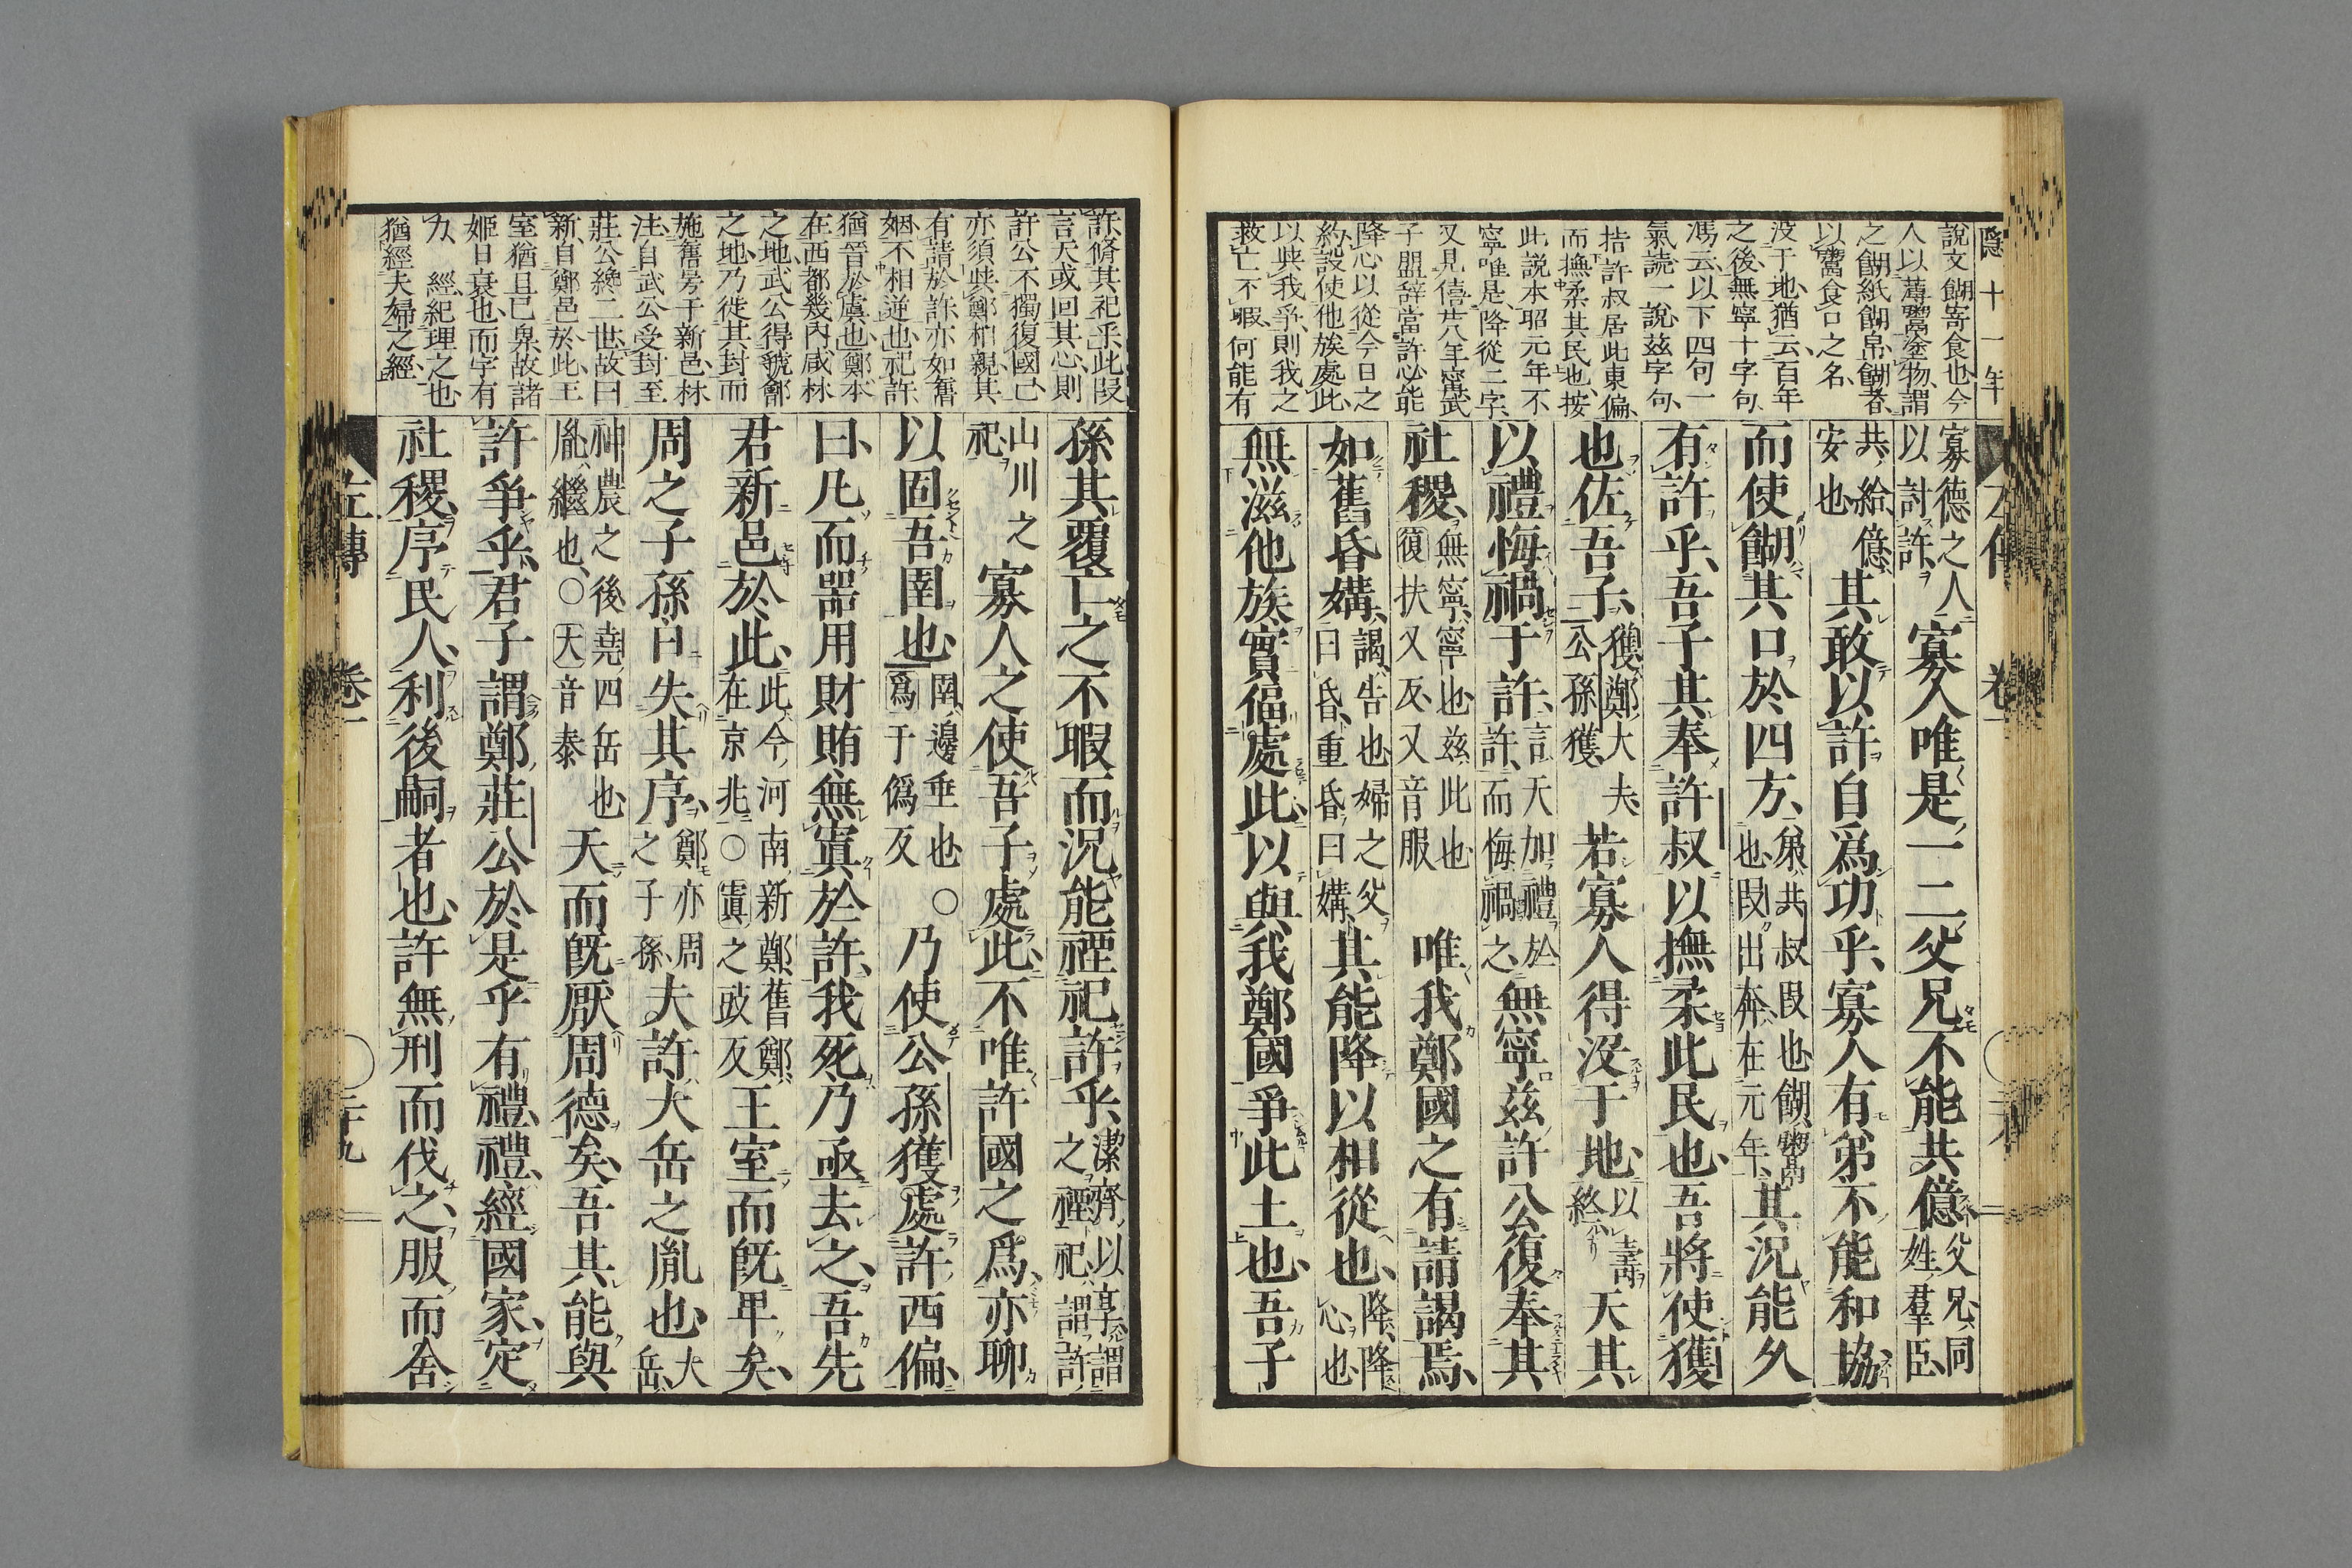 隱十一年
說文餬寄食也今
人以薄鬻塗物謂
之餬紙餬帛餬者
以鬻食口之名
没于地猶云百年
之後無寧十字句
馮云以下四句一
氣読一說茲字句
許叔居此東偏
而撫柔其民地按
此説本昭元年不
寧唯是降從二字
又見僖廿八年甯武
子盟辞當許心能
降心以從今日之
約設使他族處此
以與我爭則我之
救亡不暇何能有
寡德之人
以討許
寡人唯是一二父兄不能共億
父兄同
姓羣臣
共給億
安也
其敢以許自爲功乎寡人有弟不能和協
而使餬其口於四方
弟共叔段也餬鬻
也段出奔在元年
其況能久
有許乎吾子其奉許叔以撫柔此民也吾將使獲
也佐吾子
獲鄭大夫
公孫獲
若寡人得没于地
以壽
終
天其
以禮悔禍于許
言天加禮於
許而悔禍之
無寧茲許公復奉其
社稷
無寧寧也茲此也
復扶又反又音服
唯我鄭國之有請謁焉
如舊昏媾
謁告也婦之父
曰昏重昏曰媾
其能降以相從也
降降
心也
無滋他族實偪處此以與我鄭國爭此土也吾子
許脩其祀乎此段
言天或回其心則
許公不獨復國已
亦須與鄭相親其
有請於許亦如舊
姻不相逆也祀許
猶晉於虞也鄭本
在西都畿内咸林
之地武公得虢鄶
之地乃徙其封而
施舊号于新邑林
注自武公受封至
莊公纔二世故曰
新自鄭邑於此王
室猶且已卑故諸
姬日衰也而字有
力經經紀理之也
猶經夫婦之經
孫其覆亡之不暇而況能禋祀許乎
潔齊以享謂
之禋祀謂許
山川之
祀
寡人之使吾子處此不唯許國之爲亦聊
以固吾圉也
圉邊垂也○
爲于僞反
乃使公孫獲處許西偏
曰凡而器用財賄無寘於許我死乃亟去之吾先
君新邑於此
此今河南新鄭舊鄭
在京兆○寘之豉反
王室而旣卑矣
周之子孫日失其序
鄭亦周
之子孫
夫許大岳之胤也
大
岳
神農之後堯四岳也
胤繼也○大音泰
天而旣厭周德矣吾其能與
許爭乎君子謂鄭莊公於是乎有禮禮經國家定
社稷序民人利後嗣者也許無刑而伐之服而舍
左傳
卷一
二十九